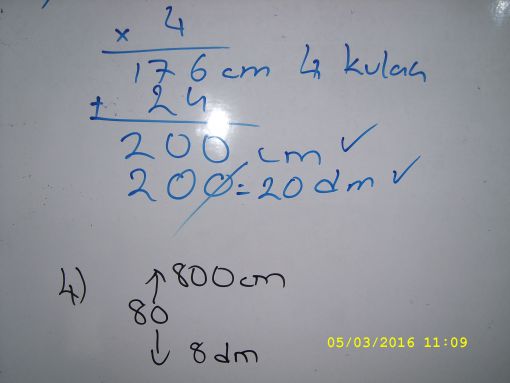 x 4
176 cm 4 kulaç
+ 24
200 cm ✓
200 = 20 dm ✓
4) ↑ 800 cm
80
↓ 8 dm
05/03/2016 11:09